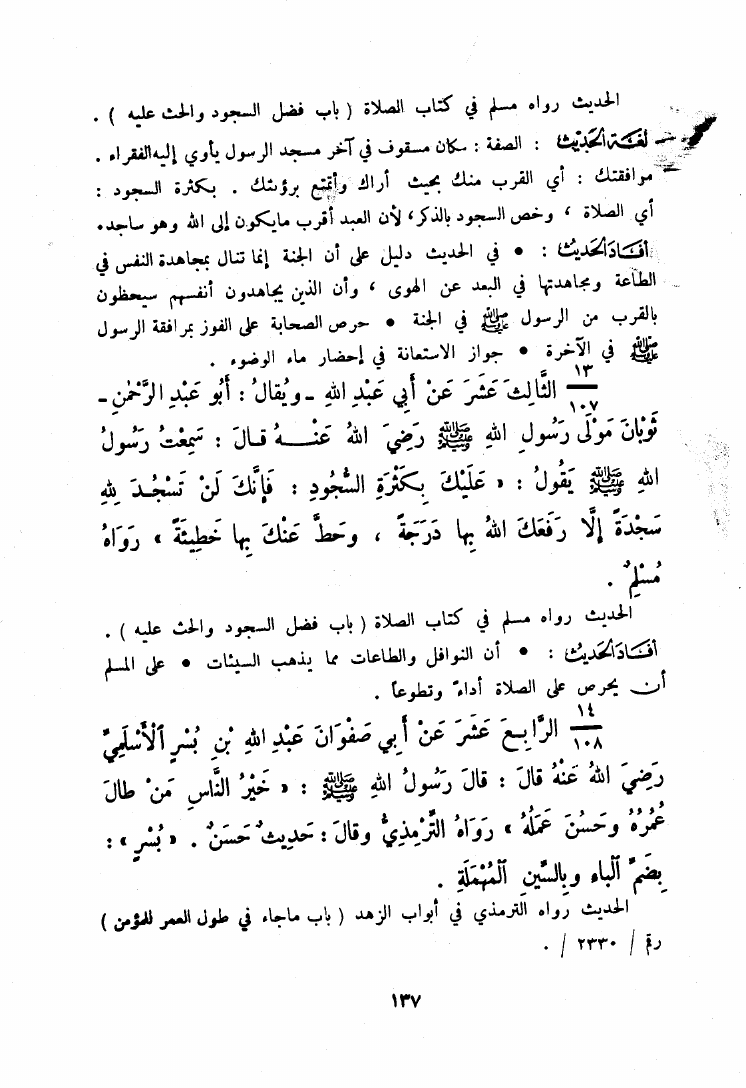 الحديث رواه مسلم في كتاب الصلاة ( باب فضل السجود والحث عليه ) .
لغَة الحَديث : الصفة : مكان مسقوف في آخر مسجد الرسول يأوي إليه الفقراء .
موافقتك : أي القرب منك بحيث أراك وأتمتع برؤيتك . بكثرة السجود :
أي الصلاة ، وخص السجود بالذكر، لأن العبد أقرب مايكون إلى الله وهو ساجد.
أفَادَ الحَديث : • في الحديث دليل على أن الجنة إنما تنال بمجاهدة النفس في
الطاعة ومجاهدتها في البعد عن الهوى ، وأن الذين يجاهدون أنفسهم سيحظون
بالقرب من الرسول ﷺ في الجنة • حرص الصحابة على الفوز بمرافقة الرسول
ﷺ في الآخرة • جواز الاستعانة في إحضار ماء الوضوء .
١٣/١٠٧ الثَّالِثَ عَشَرَ عَنْ أَبِي عَبْدِ اللهِ - ويُقالُ : أَبُو عَبْدِ الرَّحْمٰنِ -
ثَوْبَانَ مَوْلَى رَسُولِ اللهِ ﷺ رَضِيَ اللهُ عَنْهُ قالَ : سَمِعْتُ رَسُولَ
اللهِ ﷺ يَقُولُ : « عَلَيْكَ بِكَثْرَةِ السُّجُودِ : فَإِنَّكَ لَنْ تَسْجُدَ لِلهِ
سَجْدَةً إِلَّا رَفَعَكَ اللهُ بِها دَرَجَةً ، وحَطَّ عَنْكَ بِها خَطِيئَةً » رَوَاهُ
مُسْلِمٌ .
الحديث رواه مسلم في كتاب الصلاة ( باب فضل السجود والحث عليه ) .
أفَادَ الحَديث : • أن النوافل والطاعات مما يذهب السيئات • على المسلم
أن يحرص على الصلاة أداءً وتطوعاً .
١٤/١٠٨ الرَّابِعَ عَشَرَ عَنْ أَبِي صَفْوَانَ عَبْدِ اللهِ بْنِ بُسْرٍ الْأَسْلَمِيِّ
رَضِيَ اللهُ عَنْهُ قالَ : قالَ رَسُولُ اللهِ ﷺ : « خَيْرُ النَّاسِ مَنْ طالَ
عُمُرُهُ وحَسُنَ عَمَلُهُ » رَوَاهُ التِّرْمِذِيُّ وقالَ : حَدِيثٌ حَسَنٌ . « بُسْرٍ » :
بِضَمِّ الْباءِ وبِالسِّينِ الْمُهْمَلَةِ .
الحديث رواه الترمذي في أبواب الزهد ( باب ماجاء في طول العمر للمؤمن )
رقم / ٢٣٣٠ / .
١٣٧